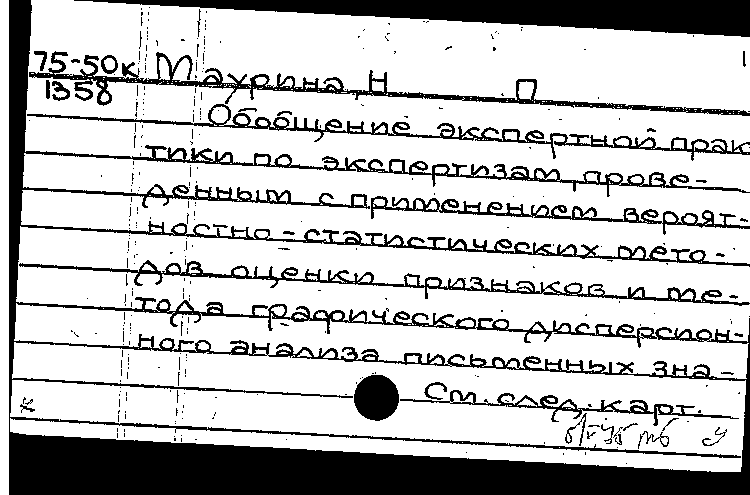 75-50к Маурина, Н П
1358
Обобщение экспертной прак
тики по экспертизам, прове-
денным с применением вероят-
ностно-статистических мето-
дов оценки признаков и ме-
тода графического дисперсион-
ного анализа письменных зна-
См. след. карт.